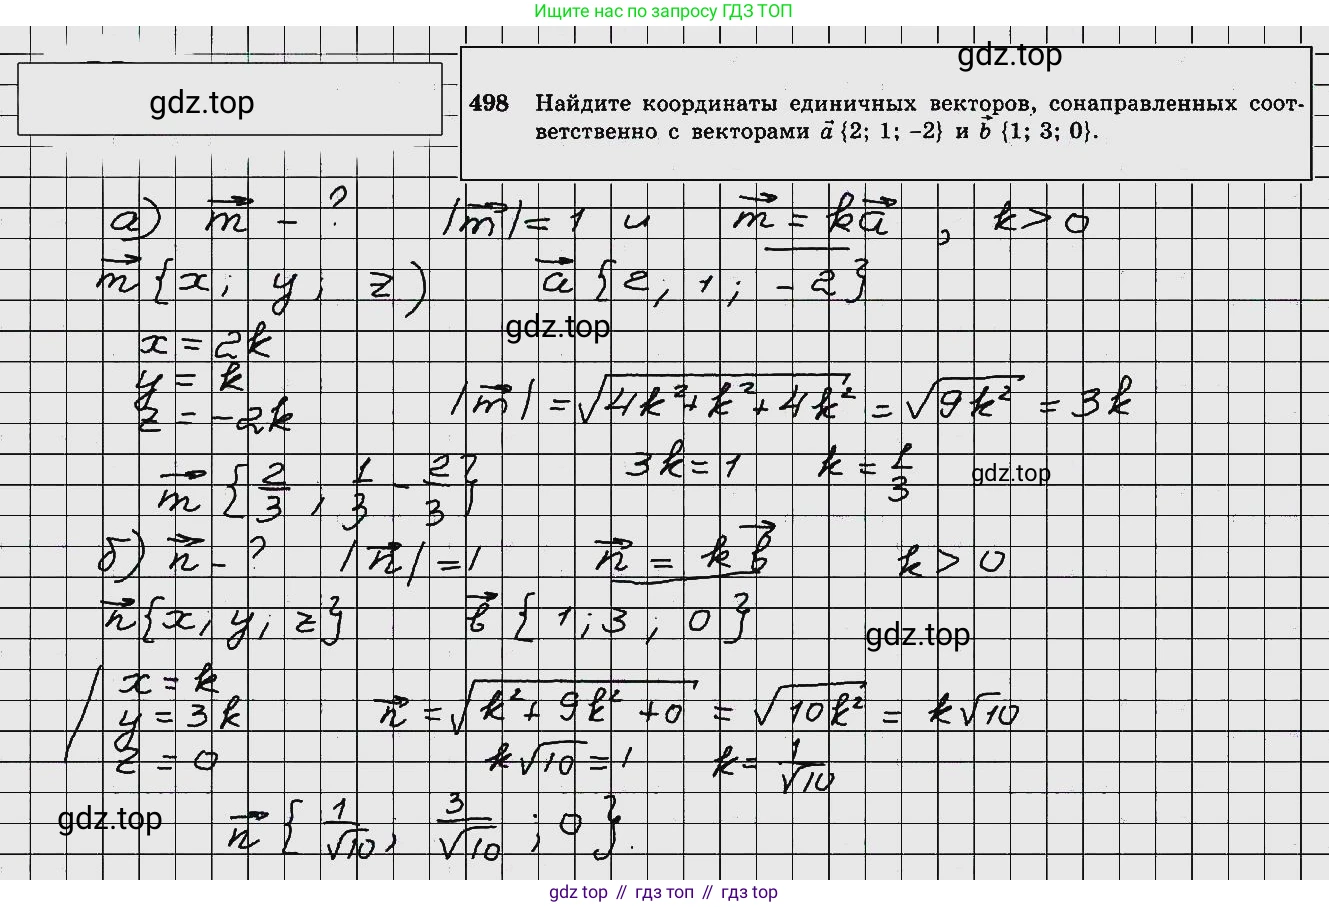 Ищите нас по запросу ГДЗ ТОП
gdz.top
gdz.top
498 Найдите координаты единичных векторов, сонаправленных соот-
ветственно с векторами a⃗ {2; 1; –2} и b⃗ {1; 3; 0}.
а) m⃗ – ? |m⃗| = 1 и m⃗ = ka⃗, k > 0
m⃗ {x; y; z) a⃗ {2, 1; –2}
gdz.top
x = 2k
y = k
z = –2k |m⃗| = √(4k² + k² + 4k²) = √(9k²) = 3k
3k = 1 k = 1/3 gdz.top
m⃗ {2/3, 1/3 – 2/3}
б) n⃗ – ? |n⃗| = 1 n⃗ = kb⃗ k > 0
n⃗ {x, y; z} b⃗ {1; 3; 0}
gdz.top
x = k
y = 3k n⃗ = √(k² + 9k² + 0) = √(10k²) = k√10
z = 0 k√10 = 1 k = 1/√10
gdz.top
n⃗ {1/√10; 3/√10; 0}.
gdz top // гдз топ // gdz top